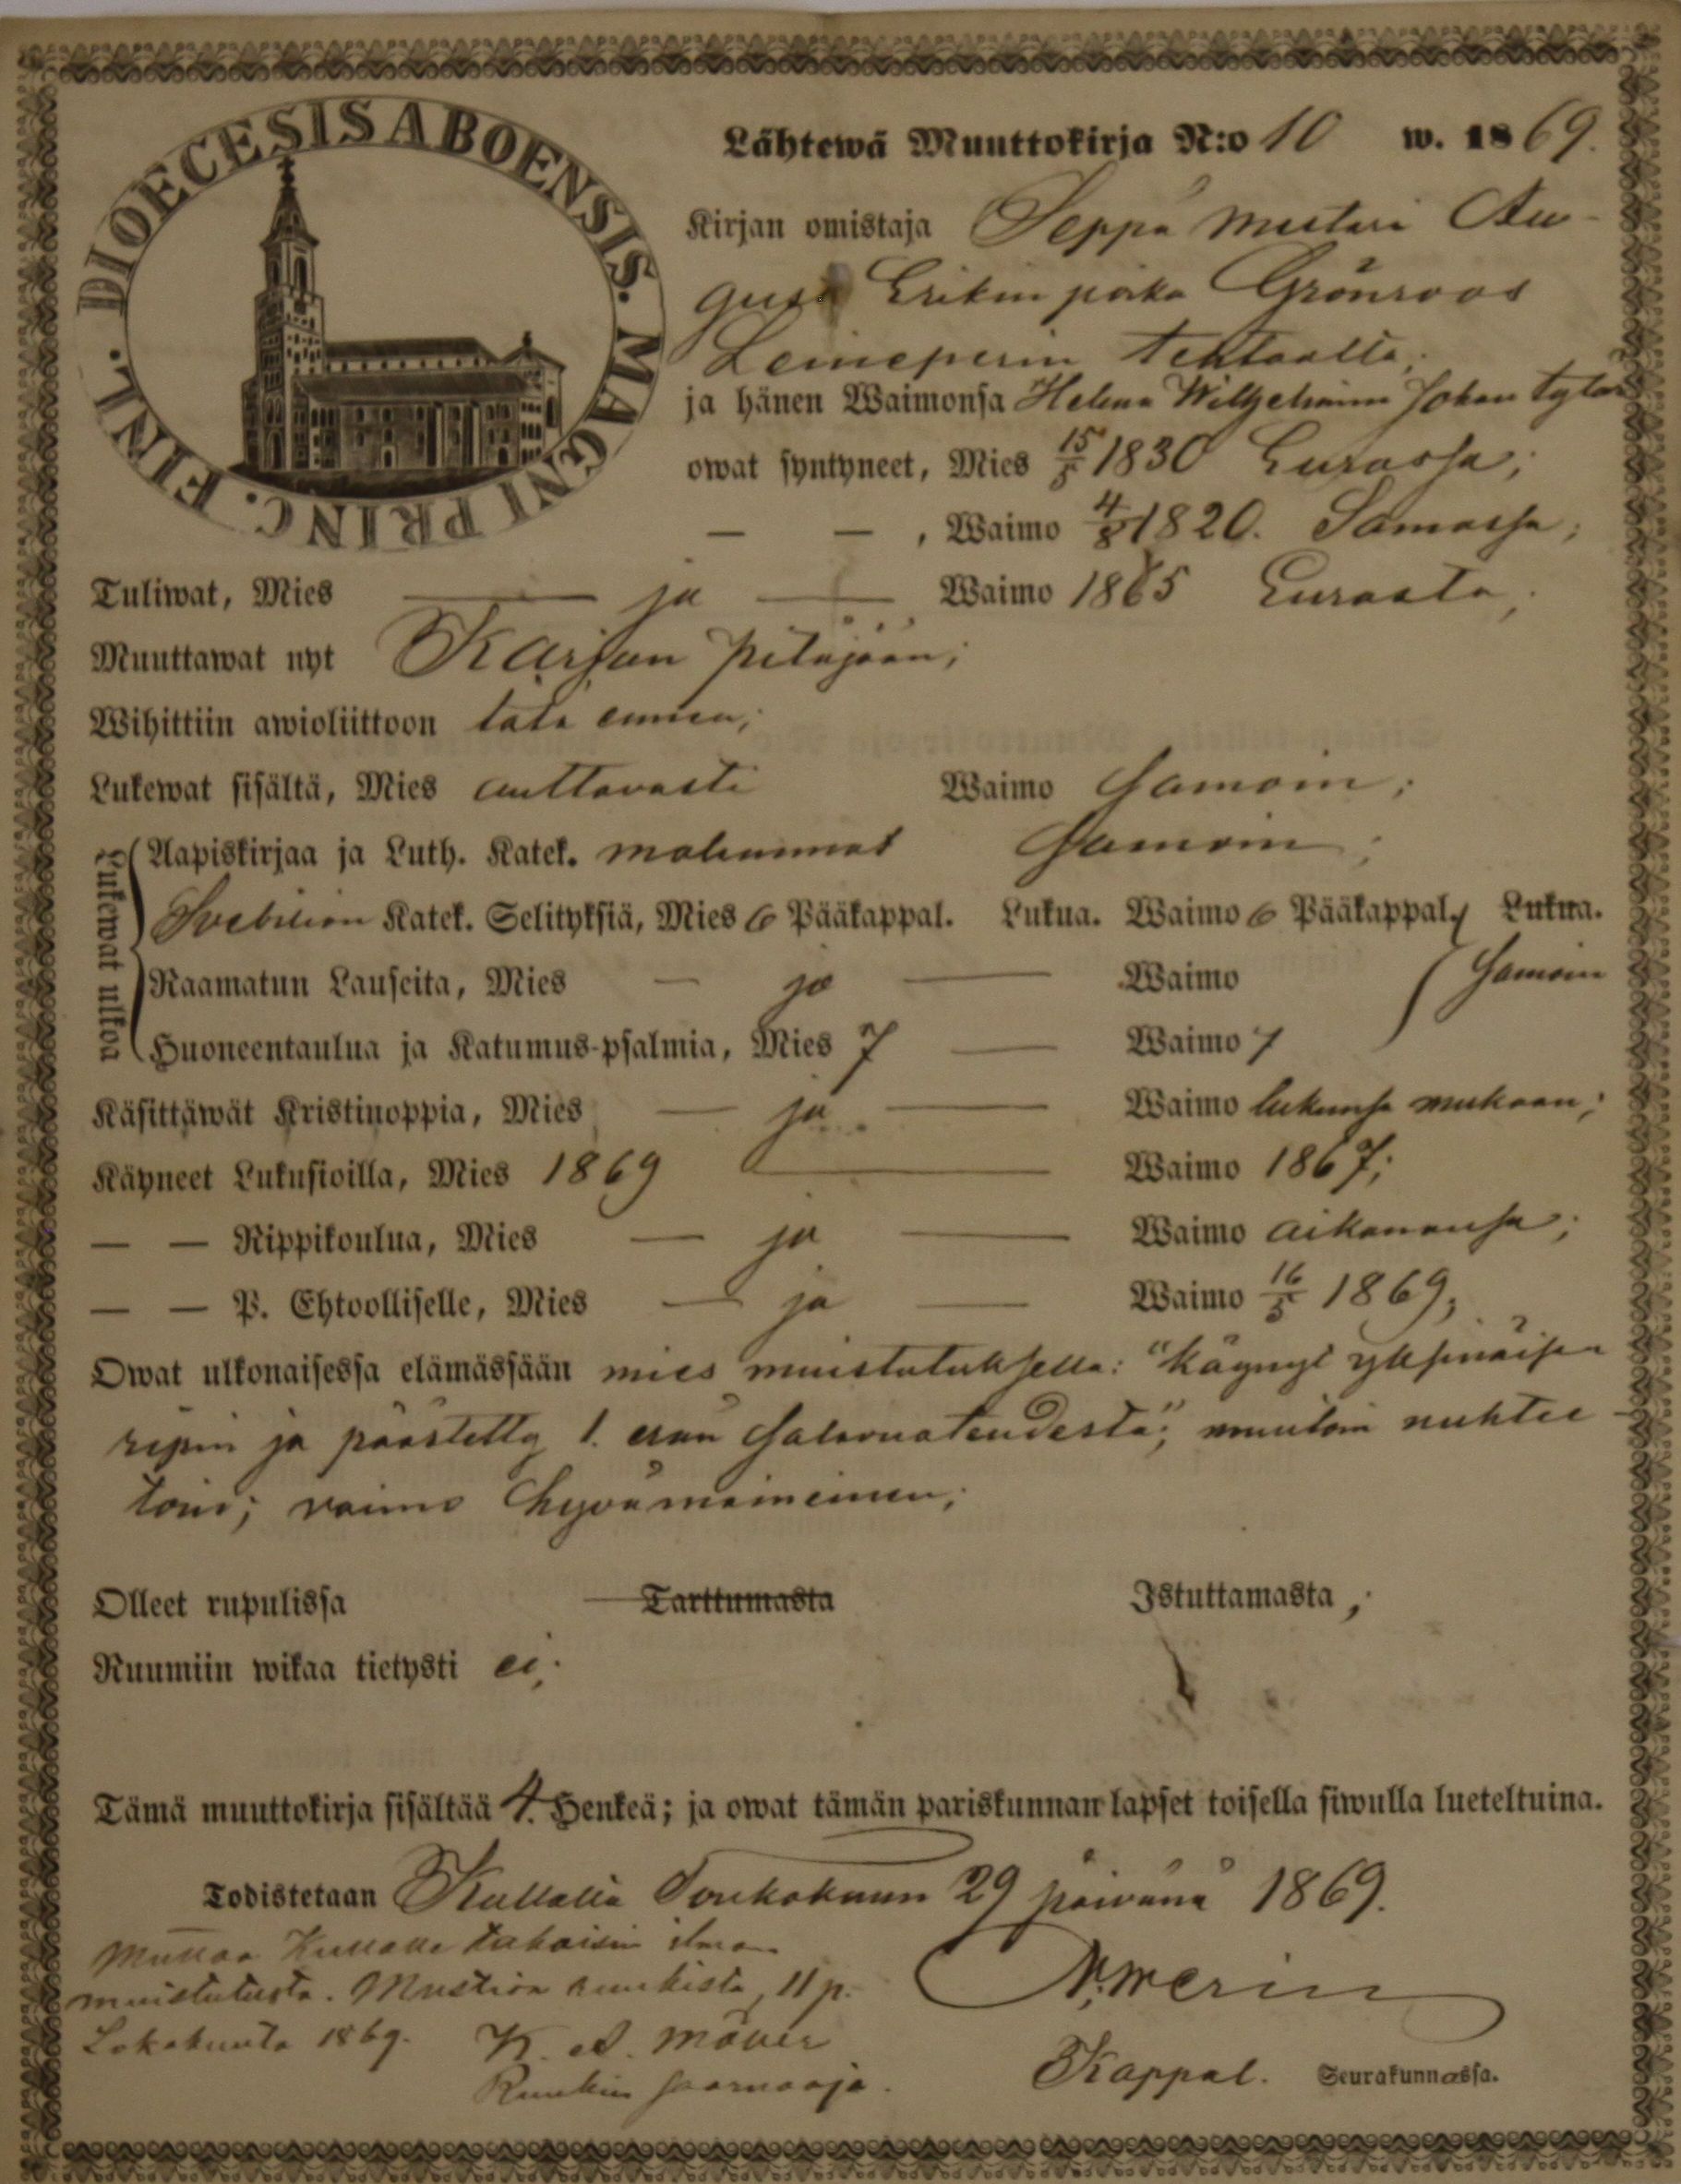 DIOECESIS ABOENSIS. MAGNI PRINC. FINL.
Lähtewä Muuttokirja N:o 10 w. 1869.
Kirjan omistaja Seppä mestari Au-
gust Erikin poika Grönroos
Leineperin tehtaalta;
ja hänen Waimonsa Helena Wilhelmiina Johan tytär
owat syntyneet, Mies 15/5 1830 Eurassa;
— — , Waimo 4/8 1820. Samassa;
Tuliwat, Mies — ja — Waimo 1865 Eurasta;
Muuttawat nyt Karjan pitäjään;
Wihittiin awioliittoon tätä ennen;
Lukewat sisältä, Mies auttavasti Waimo Samoin;
Lukewat ulkoa
Aapiskirjaa ja Luth. Katek. molemmat Samoin;
Svebilion Katek. Selityksiä, Mies 6 Pääkappal. Lukua. Waimo 6 Pääkappal. Lukua.
Raamatun Lauseita, Mies — ja — Waimo Samoin
Huoneentaulua ja Katumus-psalmia, Mies 7 — Waimo 7
Käsittäwät Kristinoppia, Mies — ja — Waimo lukunsa mukaan;
Käyneet Lukusioilla, Mies 1869 — Waimo 1867;
— — Rippikoulua, Mies — ja — Waimo aikanansa;
— — P. Ehtoolliselle, Mies — ja — Waimo 16/5 1869;
Owat ulkonaisessa elämässään mies muistutuksella: "käynyt yksinäisen
ripin ja päästetty 1. erän salavuoteudesta"; muutoin nuhtee-
toin; vaimo hyvämaineinen;
Olleet rupulissa Tarttumasta Istuttamasta;
Ruumiin wikaa tietysti ei;
Tämä muuttokirja sisältää 4. Henkeä; ja owat tämän pariskunnan lapset toisella siwulla lueteltuina.
Todistetaan Kullalla Toukokuun 29 päivänä 1869.
Muuttaa Kullalle takaisin ilman
muistutusta. Mustion ruukista, 11 p.
Lokakuuta 1869. K. A. Möller
Ruukin saarnaaja.
Merin
Kappal. Seurakunnassa.